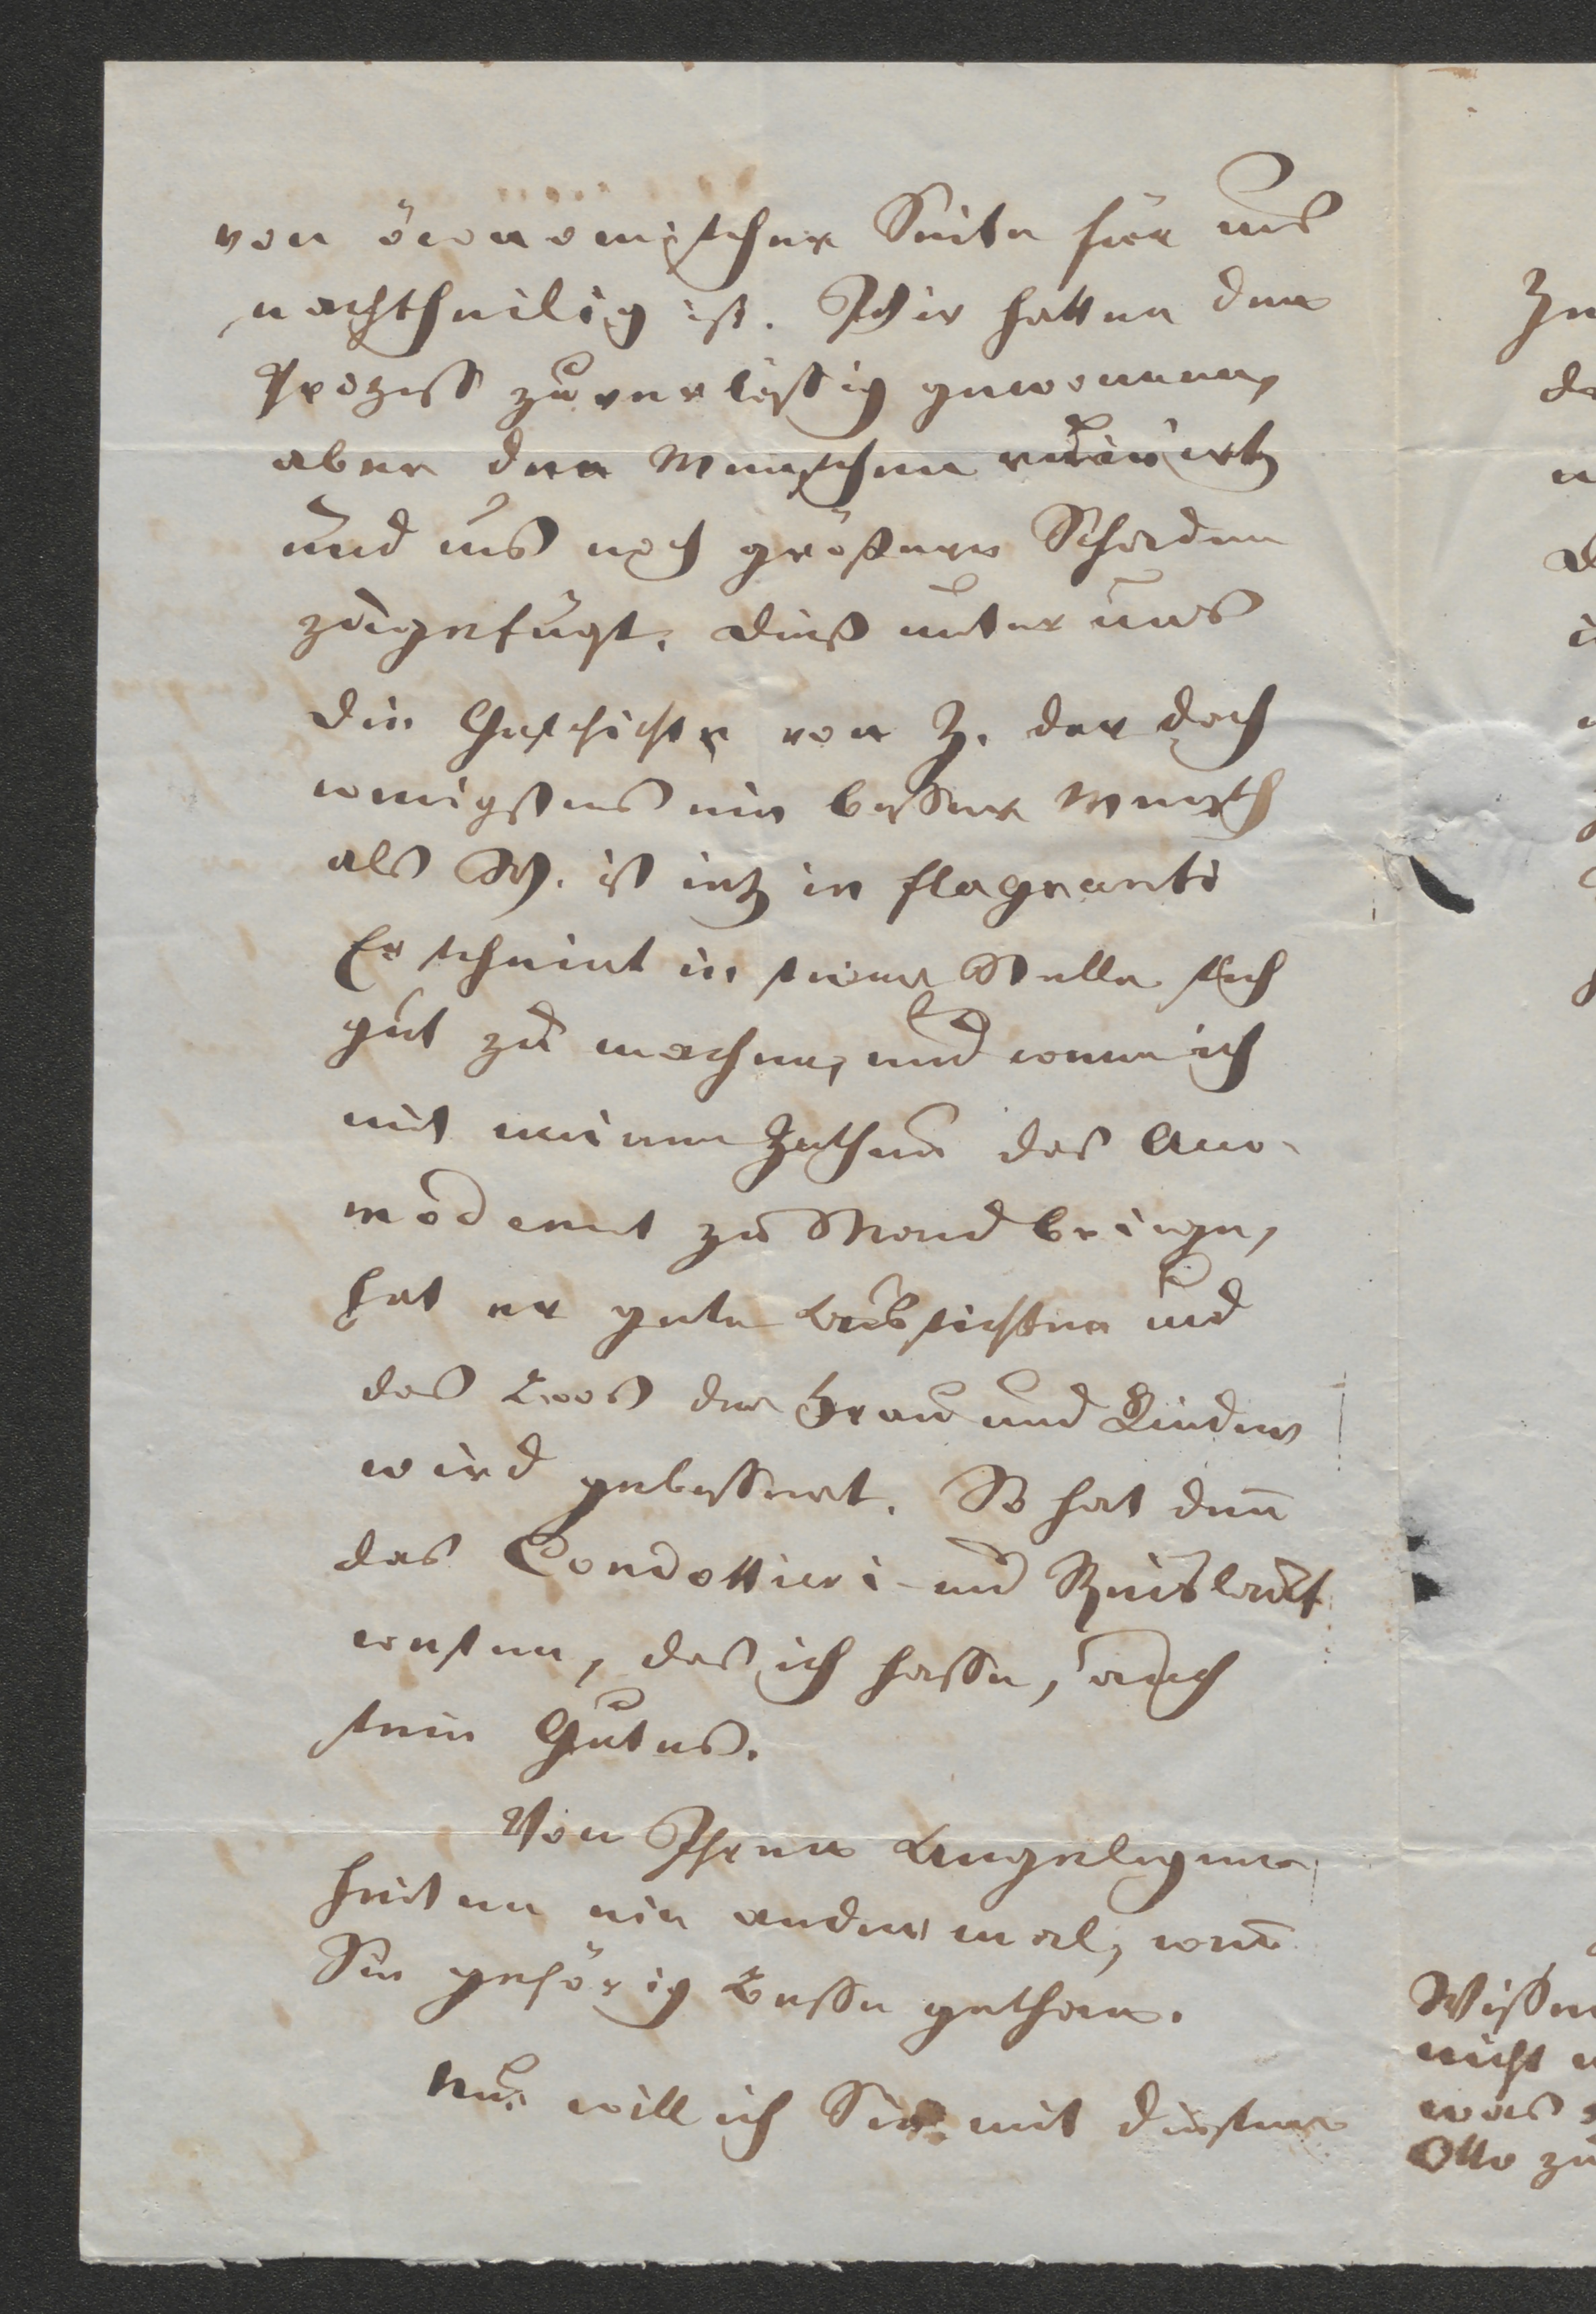 von öconomischer Seite für uns
nachtheilig ist. Wir hatten den
Prozeß zuverläßig gewonnen,
aber den Menschen ruinirt,
und uns noch größern Schaden
zugefügt. Dieß unter uns
Die Geschichte von Z. der doch
wenigstens ein beßrer Mensch
als W. ist jetz in flagranti
Er scheint in seiner Stelle sich
gut zu machen, und wenn ich
mit meinem Zuthun das Acco-
modement zu Stand bringe,
hat er gute Aussichten und
das Loos der Frau und Kinder
wird gebessert. So hat denn
das Condottieri- und Reislauf
wesen, das ich hasse, auch
sein Gutes.
Von Ihren Angelegen
heiten ein andermal, wenn
Sie gehörig Buße gethan.
Nur will ich Sie mit diesem
Zu
Wissen
nicht
was
Otto zu